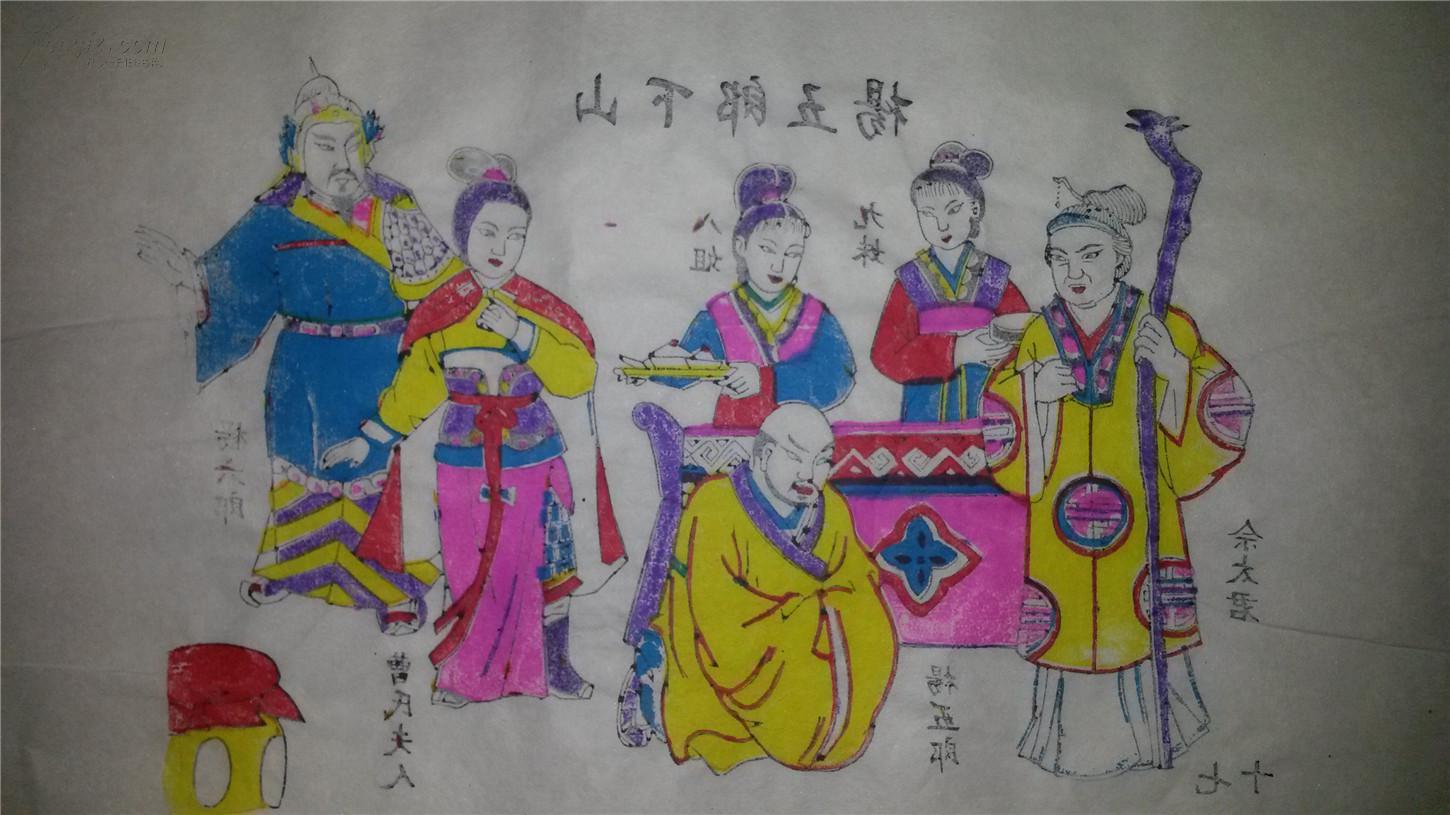 楊五郎下山
九妹
八姐
佘太君
楊六郎
楊五郎
曹氏夫人
十七